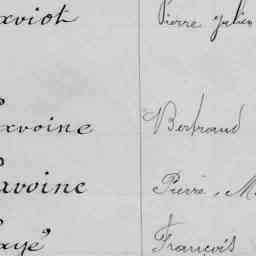 axviot Pierre Julien
Lavoine Bertrand
Lavoine Pierre, M
Laye François